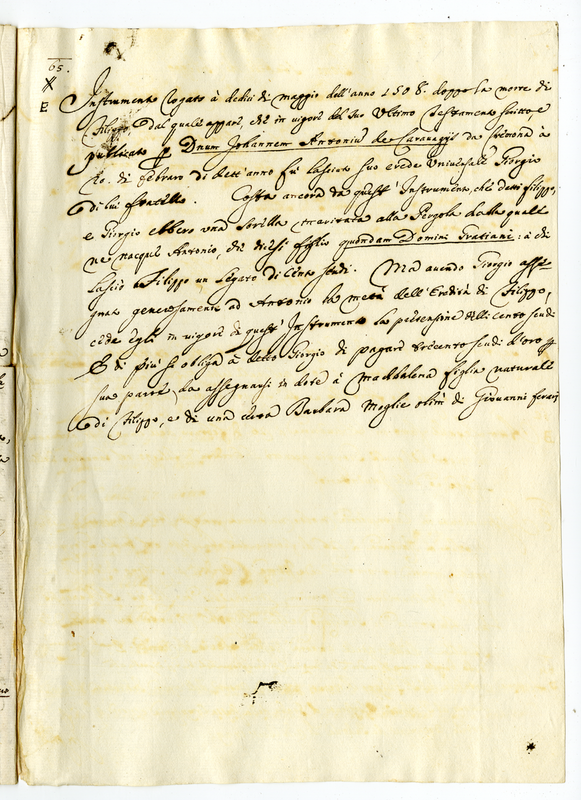 65.
X
E
Instrumento rogato à dedici di maggio dell'anno 1508. doppo la morte di
Filippo dal quale appare, che in vigore del suo Ultimo Testamento scritto, e
publicato per Dnum Johannem Antonium de Caravaggis da Cremona à
di Febraro di dett'anno fù lasciato suo erede Universale Giorgio
di lui fratello. Costa ancora da quest'Instrumento, che detti filippo,
e Giorgio ebbero una Sorella maritata alla Pergola dalla quale
ne nacque Antonio, che dicesi figlio quondam Domini Gratiani: à chi
lasciò Filippo un legato di Cento scudi. Ma avendo Giorgio asse-
gnata generosamente ad Antonio la metà dell'Eredità di Filippo,
cede egli in vigore di quest'Instrumento la pretensione delli cento scudi
E di più si obliga à detto Giorgio di pagare trecento scudi d'oro per
sua parte da assegnarsi in dote à Maddalena figlia naturale
di Filippo, e di una certa Barbara Moglie olim di Giovanni